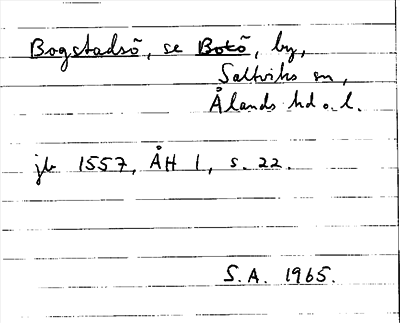 Bogstadsö, se Botö, by,
Saltviks sn,
Ålands hd o. l.
jb 1557, ÅH 1, s. 22.
S.A. 1965.